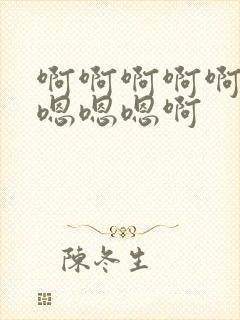 啊啊啊啊啊
嗯嗯嗯啊
陳冬生